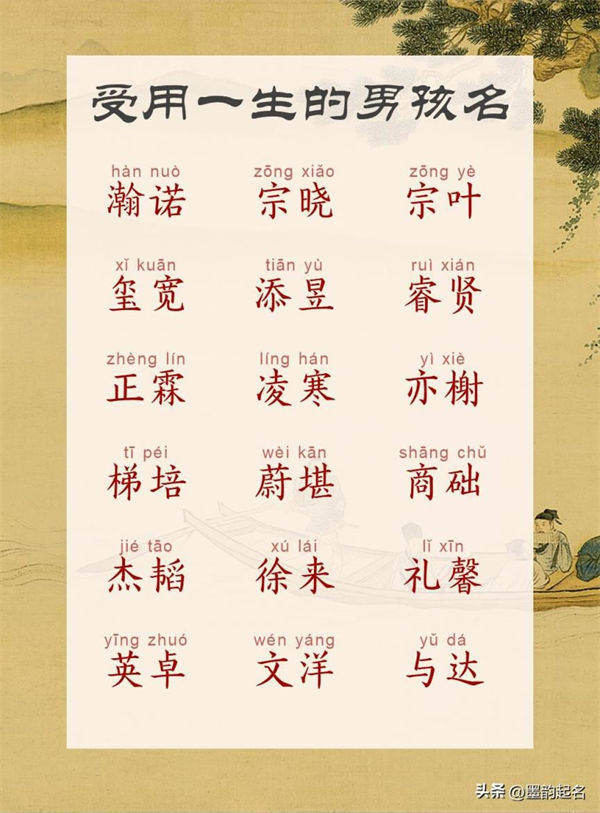 受用一生的男孩名
hàn nuò zōng xiǎo zōng yè
瀚诺 宗晓 宗叶
xǐ kuān tiān yù ruì xián
玺宽 添昱 睿贤
zhèng lín líng hán yì xiè
正霖 凌寒 亦榭
tī péi wèi kān shāng chǔ
梯培 蔚堪 商础
jié tāo xú lái lǐ xīn
杰韬 徐来 礼馨
yīng zhuó wén yáng yǔ dá
英卓 文洋 与达
头条 @墨韵起名